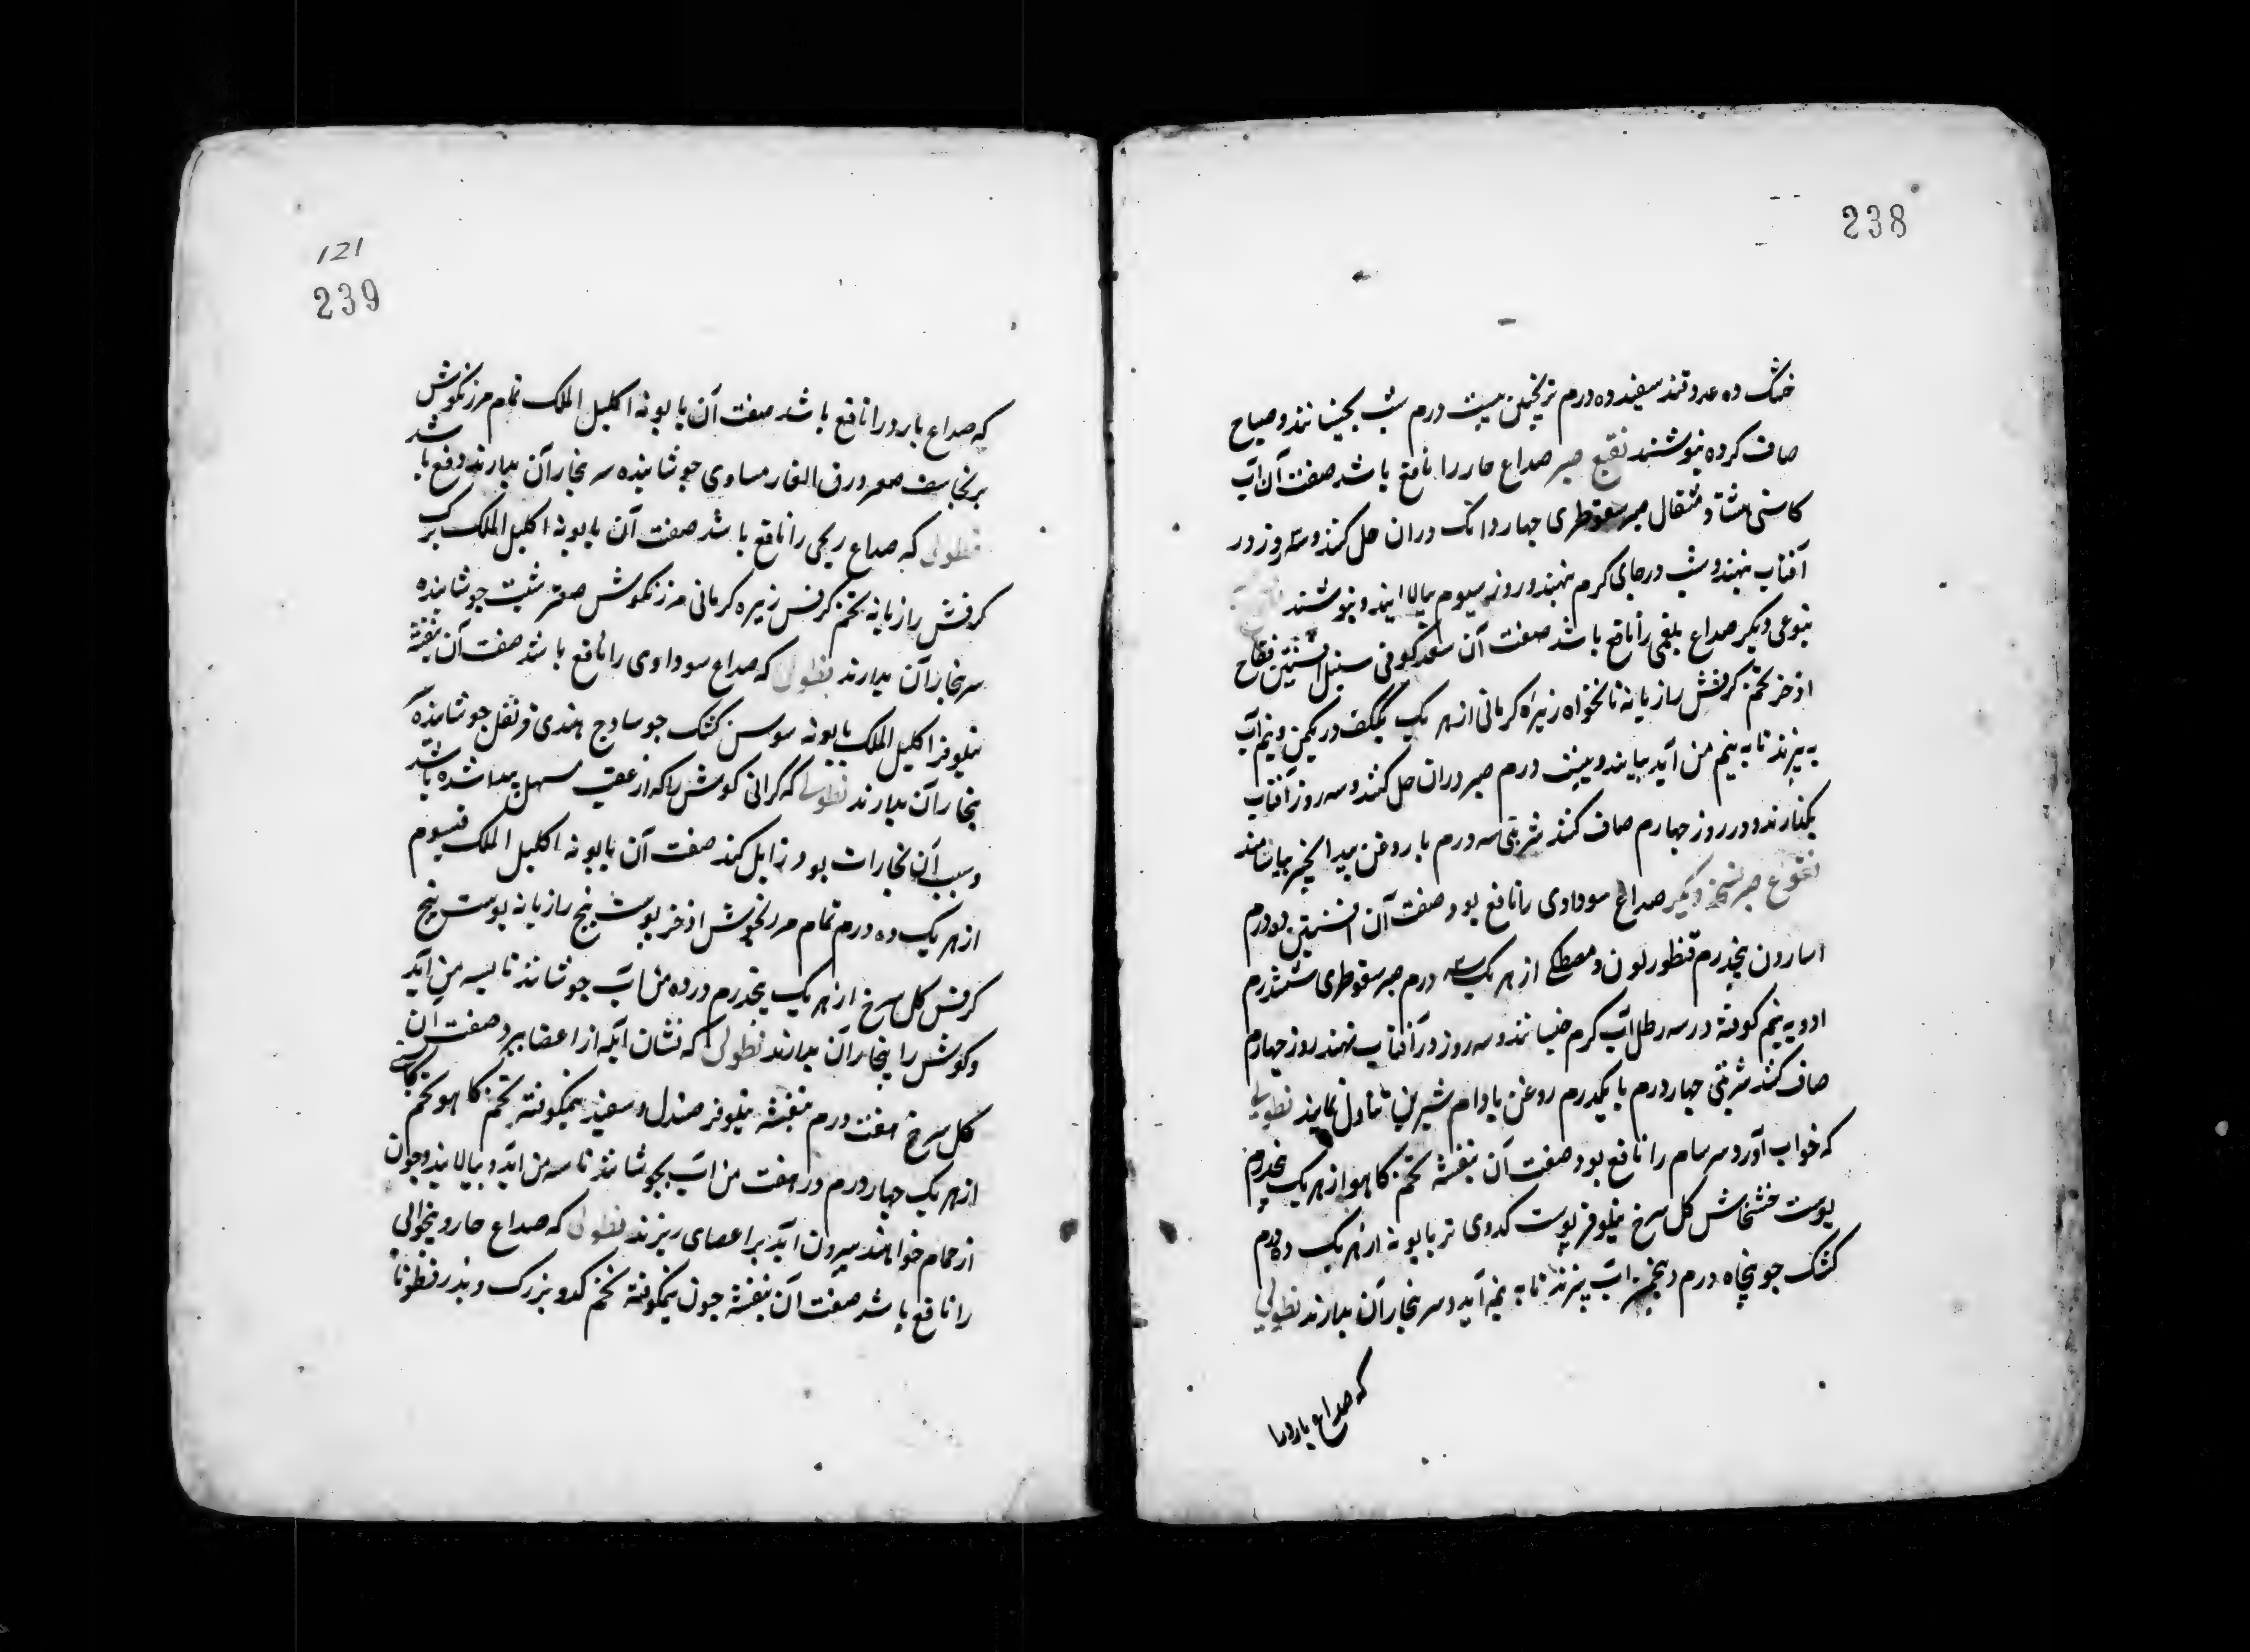 238
خشک ده عدد قند سفید ده درم ترنجبین بیست درم شب بخیسانند و صباح
صاف کرده بنوشند نقیع صبر صداع حار را نافع باشد صفت آن آب
کاسنی هشتاد مثقال صبر سقوطری چهار دانک دران حل کنند و سه روز در
آفتاب نهند و شب در جای کرم نهند و روز سیوم بپالایند و بنوشند
بنوعی دیکر صداع بلغمی را نافع باشد صفت آن سعد کوفی سنبل افسنتین فقاح
اذخر تخم کرفش رازیانه نانخواه زیره کرمانی از هر یک یککف در یکمن و نیم آب
به پزند تا به نیم من آید بپالیند و بیست درم صبر دران حل کنند و سه روز آفتاب
بگذارند و در روز چهارم صاف کنند شربتی سه درم با روغن بیدانجیر بیاشامند
نقوع صبر نسخه دیکر صداع سوداوی را نافع بود صفت آن افسنتین دو درم
اسارون پنجدرم قنطوریون و مصطکی از هر یک سه درم صبر سقوطری ششدرم
ادویه نیم کوفته در سه رطل آب کرم خیسانند و سه روز در آفتاب نهند روز چهارم
صاف کنند شربتی چهار درم با یکدرم روغن بادام شیرین تناول نمایند نطولی
که خواب آورد سرسام را نافع بود صفت آن بنفشه تخم کاهو از هر یک پنجدرم
پوست خشخاش کل سرخ نیلوفر پوست کدوی تر بابونه از هر یک ده درم
کشک جو پنجاه درم در پنجمن آب پزند تا به نیمه آید و سر بخار آن بدارند نطولی
که صداع بارد را
121
239
که صداع بارد را نافع باشد صفت آن بابونه اکلیل الملک تمام مرزنکوش
برنجاسف صعتر ورق الغار مساوی جوشانیده سر بخار آن بدارند دفع باشد
نطولی که صداع ریحی را نافع باشد صفت آن بابونه اکلیل الملک برک
کرفش رازیانه تخم کرفس زیره کرمانی مرزنکوش صعتر شبت جوشانیده
سر بخار آن بدارند نطولی که صداع سوداوی را نافع باشد صفت آن بنفشه
نیلوفر اکلیل الملک بابونه سوسن کشک جو سادج هندی قرنفل جوشانیده
بخار آن بدارند نطولی که کرانی کوش را که از عقب مسهل پیدا شده باشد
و سبب آن بخارات بود زایل کند صفت آن بابونه اکلیل الملک قیسوم
از هر یک ده درم تمام مرزنجوش اذخر پوست بیخ رازیانه پوست بیخ
کرفس کل سرخ از هر یک پنجدرم در ده من آب جوشانند تا بسه من آید
و کوش را ببخار آن بدارند نطولی که نشان آبله از اعضا ببرد صفت آن
کل سرخ هفت درم بنفشه نیلوفر صندل سفید نیمکوفته تخم کاهو تخم کاسنی
از هر یک چهار درم در هفت من آب بجوشانند تا سه من آید و بپالایند و چون
از حمام خواهند بیرون آید بر اعضای ریزند نطولی که صداع حار و بیخوابی
را نافع باشد صفت آن بنفشه جون نیمکوفته تخم کدو بزرک و بذر قطونا